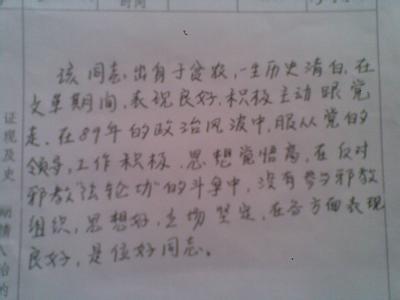 时间
该同志出身于贫农，一生历史清白，在
文革期间，表现良好，积极主动跟党
走，在89年的政治风波中，服从党的
领导，工作积极，思想觉悟高，在反对
邪教"法轮功"的斗争中，没有参与邪教
组织，思想好，立场坚定，在各方面表现
良好，是位好同志。
证
现
及
史
情
人
治
的